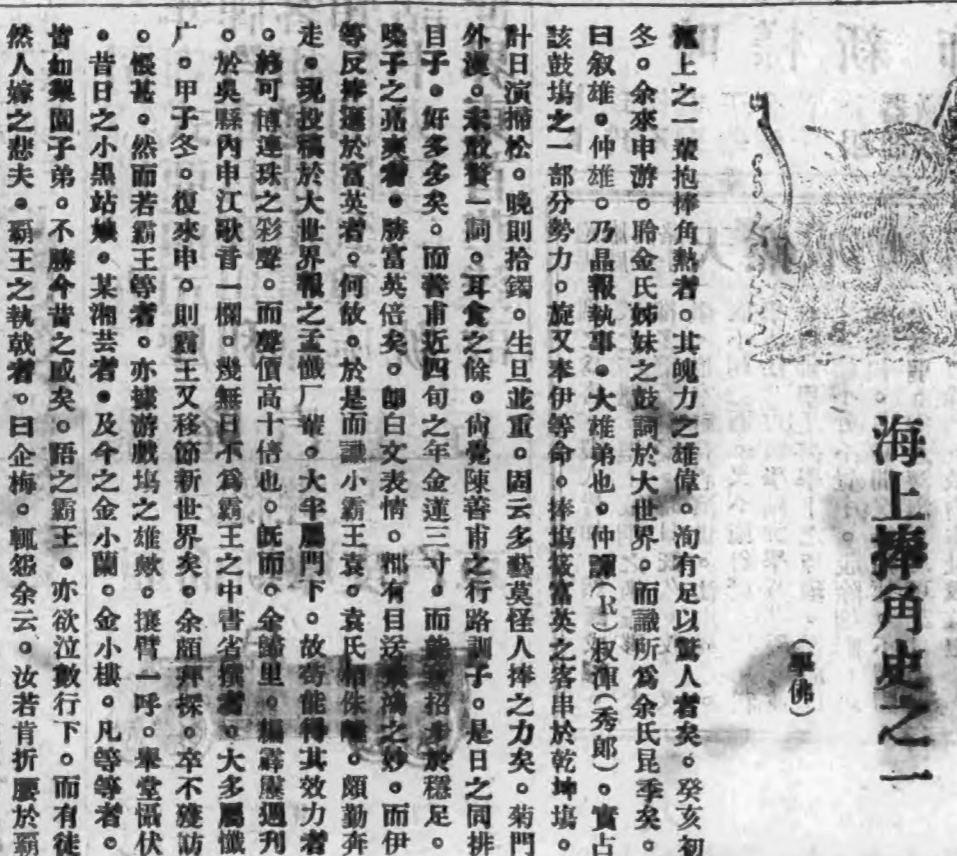 海上捧角史之一
（畢佛）
滬上之一輩抱捧角熱者。其魄力之雄偉。洵有足以驚人者矣。癸亥初
冬。余來申游。聆金氏姊妹之鼓詞於大世界。而識所爲余氏昆季矣。
曰叙雄。仲雄。乃晶報執事。大雄弟也。仲譚（R）叔渾（秀郎）。實占
該鼓塲之一部分勢力。旋又奉伊等命。捧塲筱富英之客串於乾坤塲。
計日演掃松。晚則拾鐲。生旦並重。固云多藝莫怪人捧之力矣。菊門
外漢。未敢贊一詞。耳食之餘。尙覺陳善甫之行路訓子。是日之同排
目子。好多多矣。而善甫近四旬之年金蓮三寸。而能 招 於穩足。
嗓子之亮爽者。勝富英倍矣。卽白文表情。都有目送 鴻之妙。而伊
等反捧 於富英者。何故。於是而識小霸王袁。袁氏 侏 。頗勤奔
走。現投稿於大世界報之孟懺厂輩。大半屬門下。故苟能得其效力者
。終可博連珠之彩聲。而聲價高十倍也。旣而。余歸里。編霹靂週刊
。於吳縣內申江歌音一欄。幾無日不爲霸王之中書省撰者。大多屬懺
厂。甲子冬。復來申。則霸王又移節新世界矣。余頗拜探。卒不獲訪
。悵甚。然而若霸王等者。亦據游戲塲之雄歟。攘臂一呼。舉堂懾伏
。昔日之小黑站娘。某湘芸者。及今之金小蘭。金小樓。凡等等者。
皆如梨園子弟。不勝今昔之感矣。語之霸王。亦欲泣數行下。而有徒
然人嫁之悲夫。霸王之執戟者。曰企梅。輒怨余云。汝若肯折腰於霸